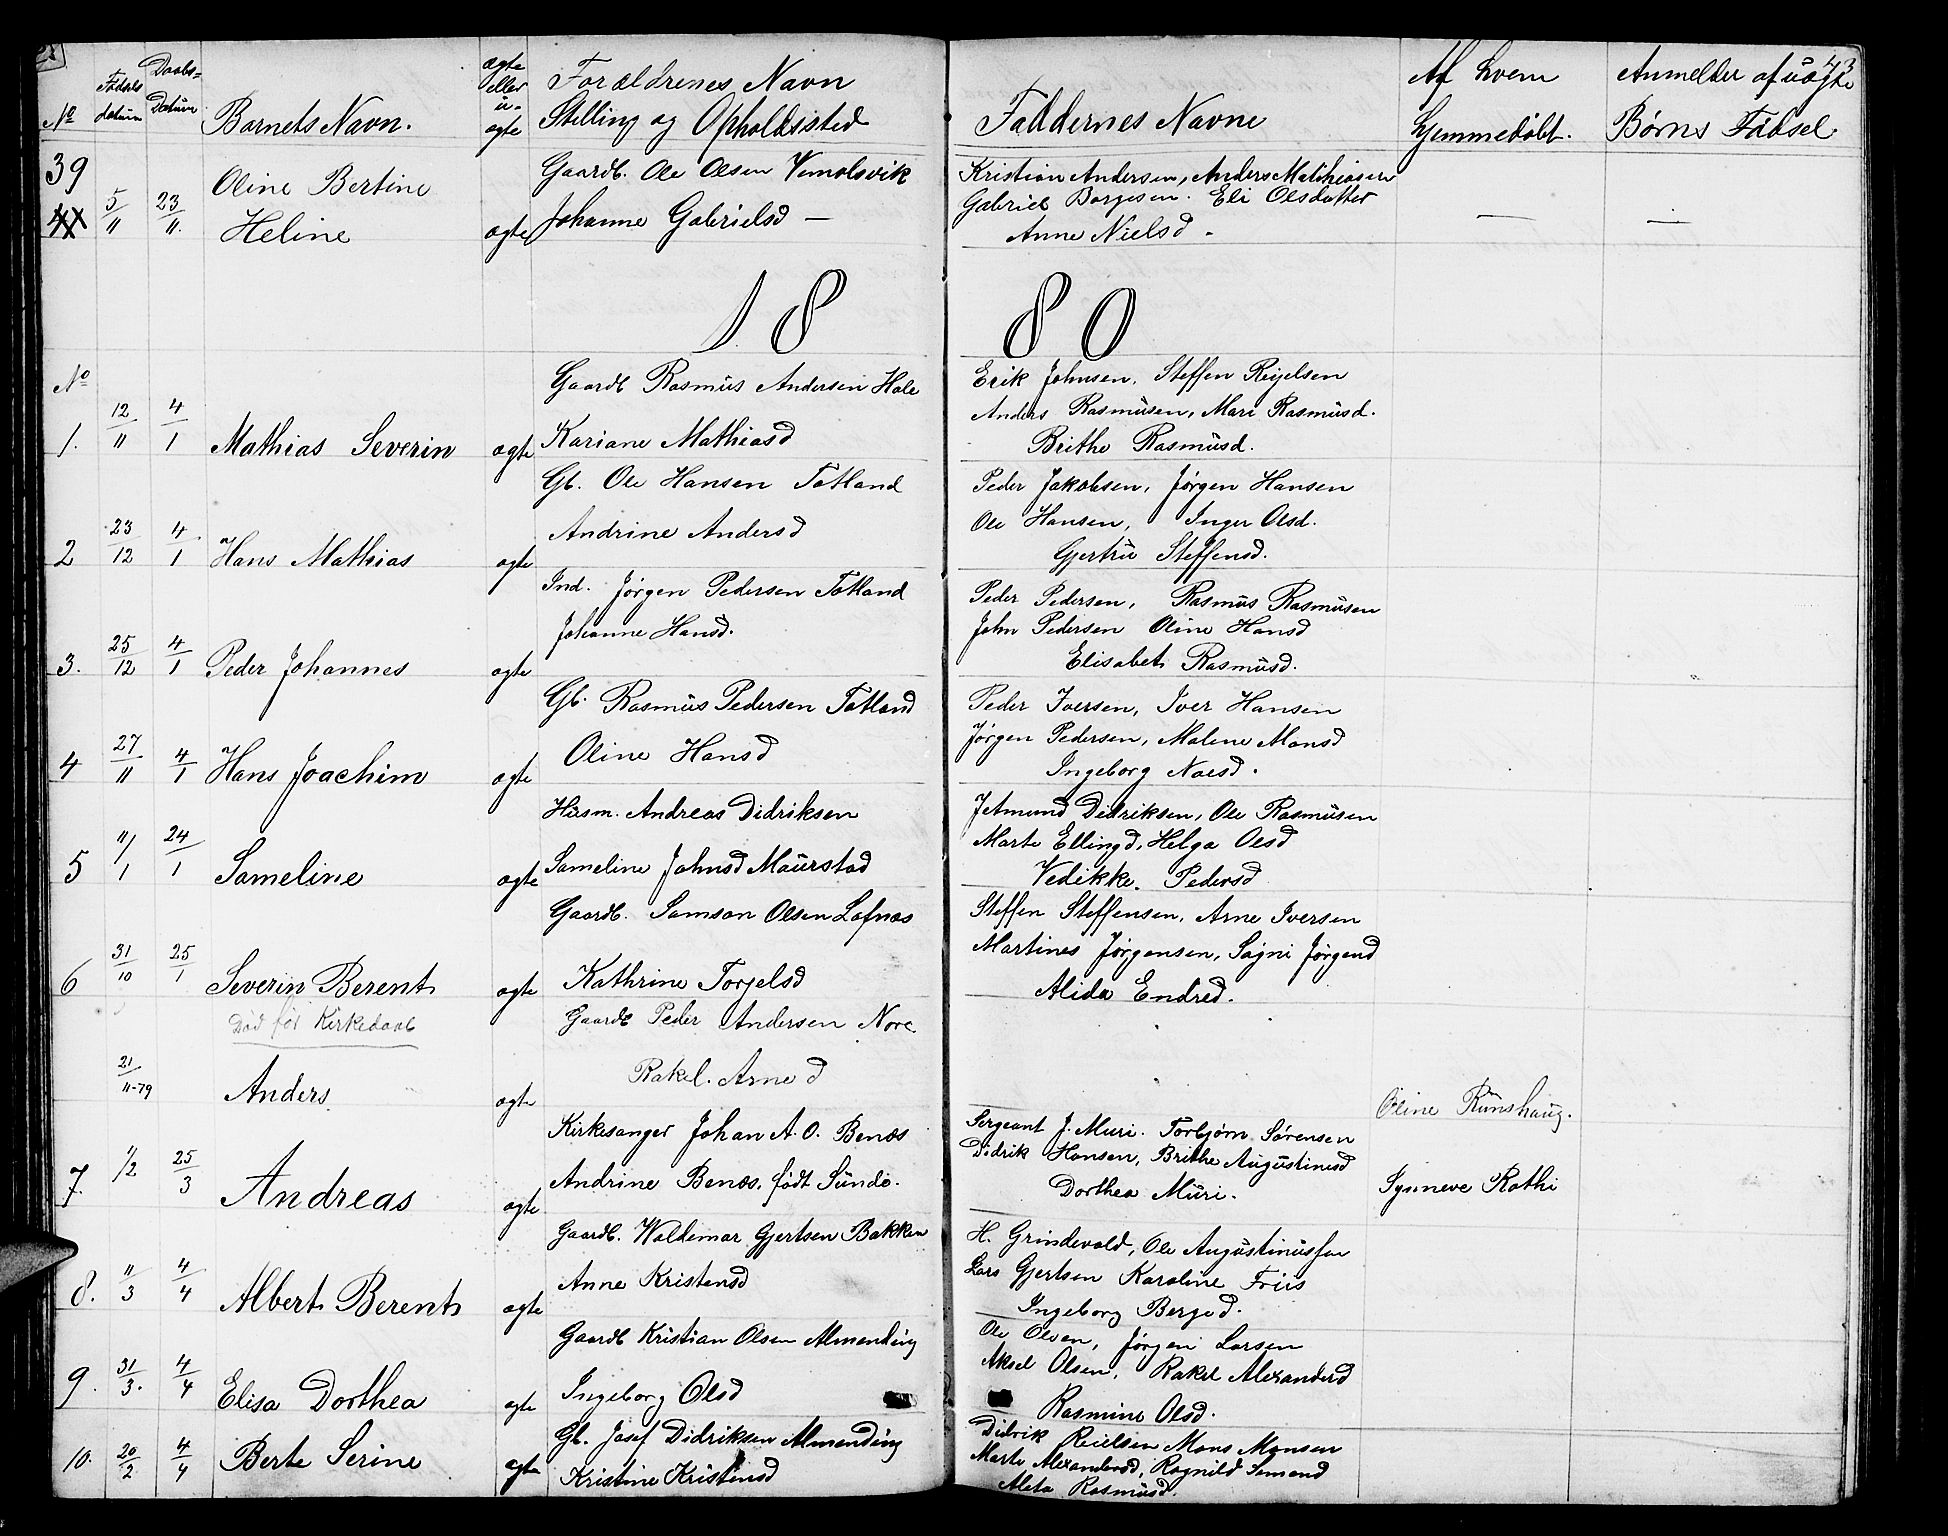 43
No
Fødsels datum
Daabs= Datum
Barnets Navn.
ægte eller u- ægte
Forældrenes Navn
Stilling og Opholdssted
Faddernes Navne
Af hvem
hjemmedøbt.
Anmelder af uægte
Børns Fødsel
39
41
5/11
23/11.
Oline Bertine
Heline
ægte
Gaardb. Ole Olsen Vemolsvik
Johanne Gabrielsd —
Kristian Andersen, Anders Mathiasen
Gabriel Borgesen. Eli Olsdatter
Anne Nielsd -
—
—
18 80
No
1.
12/11
4/1
Mathias Severin
ægte
Gaardb Rasmus Andersen Hole
Kariane Mathiasd
Erik Johnsen, Steffen Reijelsen
Anders Rasmusen, Mari Rasmusd.
Brithe Rasmusd.
2
23/12
4/1
Hans Mathias
ægte
Gb. Ole Hansen Totland
Andrine Andersd
Peder Jakobsen, Jørgen Hansen
Ole Hansen, Inger Olsd.
Gjertru Steffensd.
3.
25/12
4/1
Peder Johannes
ægte
Ind. Jørgen Pedersen Totland
Johanne Hansd.
Peder Pedersen, Rasmus Rasmusen
John Pedersen Oline Hansd
Elisabet Rasmusd.
4
27/11
4/1
Hans Joachim
ægte
Gb. Rasmus Pedersen Totland
Oline Hansd
Peder Iversen, Iver Hansen
Jørgen Pedersen, Malene Monsd
Ingeborg Naesd.
5
11/1
24/1
Sameline
ægte
Husm. Andreas Didriksen
Sameline Johnsd Maurstad
Jetmund Didriksen, Ole Rasmusen
Marte Ellingd, Helga Olsd
Vedikke. Pedersd
6
31/10
25/1
Severin Berent
ægte
Gaardb. Samson Olsen Lofnæs
Kathrine Torjelsd
Steffen Steffensen, Arne Iversen
Martines Jørgensen, Sagni Jørgend
Alida Endred.
Død før Kirkedaab
21/11-79
Anders
ægte
Gaardb Peder Andersen Nore
Rakel. Arned
Oline Runshaug.
7.
1/2
25/3
Andreas
ægte
Kirkesanger Johan A. O. Benæs
Andrine Benæs. født Sunde.
Sergeant J. Muri. Torbjørn Sørensen
Didrik Hansen, Brithe Augustinusd
Dorthea Muri.
Synneve Rothi
8.
11/3
4/4
Albert Berent
ægte
Gaardb. Waldemar Gjertsen Bakken
Anne Kristensd
H. Grindevold, Ole Augustinussen
Lars Gjertsen Karoline Friis
Ingeborg Berged.
9.
31/3.
4/4
Elisa Dorthea
ægte
Gaardb Kristian Olsen Almending
Ingeborg Olsd
Ole Olsen, Jørgen Larsen
Aksel Olsen, Rakel Alexandersd
Rasmine Olsd.
10.
20/2
4/4
Berte Serine
ægte
Gb. Josef Didriksen Almending
Kristine Kristensd
Didrik Reielsen Mons Monsen
Marte Alexandersd, Ragnild Semond
Aleta Rasmusd.